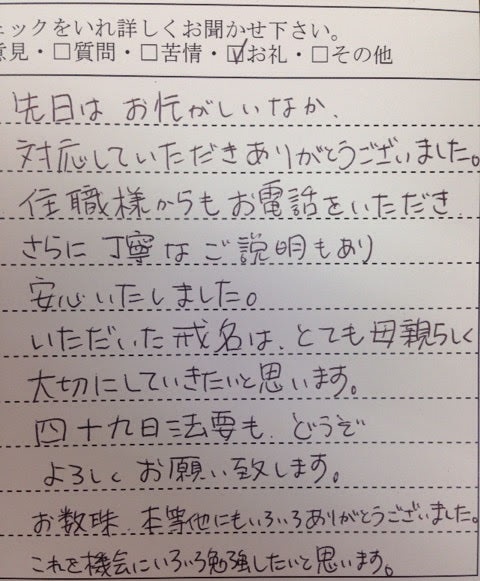 ェックをいれ詳しくお聞かせ下さい。
意見・□質問・□苦情・☑お礼・□その他
先日は お忙がしいなか、
対応していただきありがとうございました。
住職様からもお電話をいただき
さらに丁寧なご説明もあり
安心いたしました。
いただいた戒名は、とても母親らしく
大切にしていきたいと思います。
四十九日法要も、どうぞ
よろしくお願い致します。
お数珠、本等他にもいろいろありがとうございました。
これを機会にいろいろ勉強したいと思います。